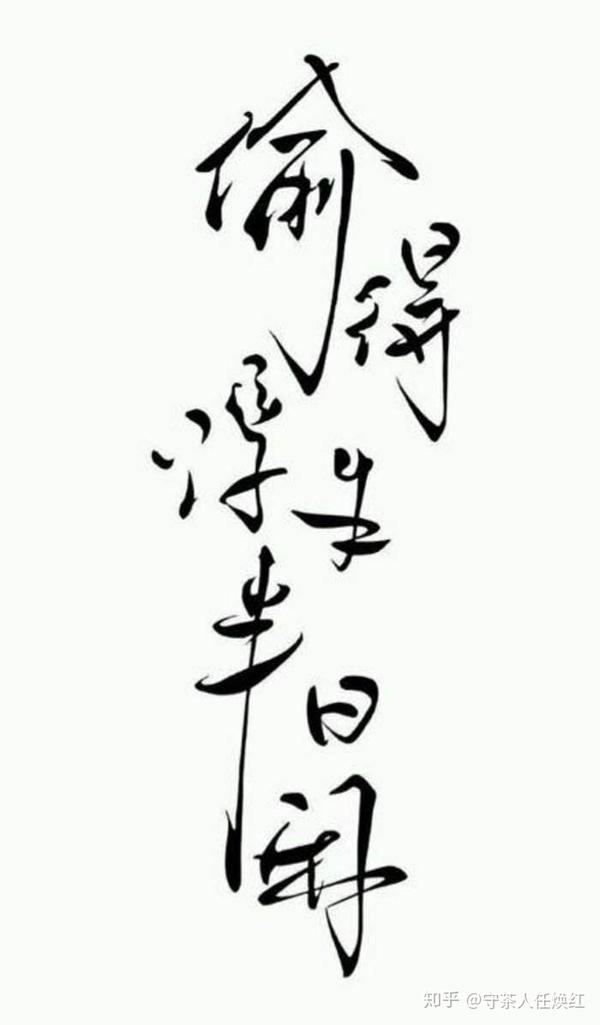 偷得浮生半日闲
知乎 @守茶人任焕红